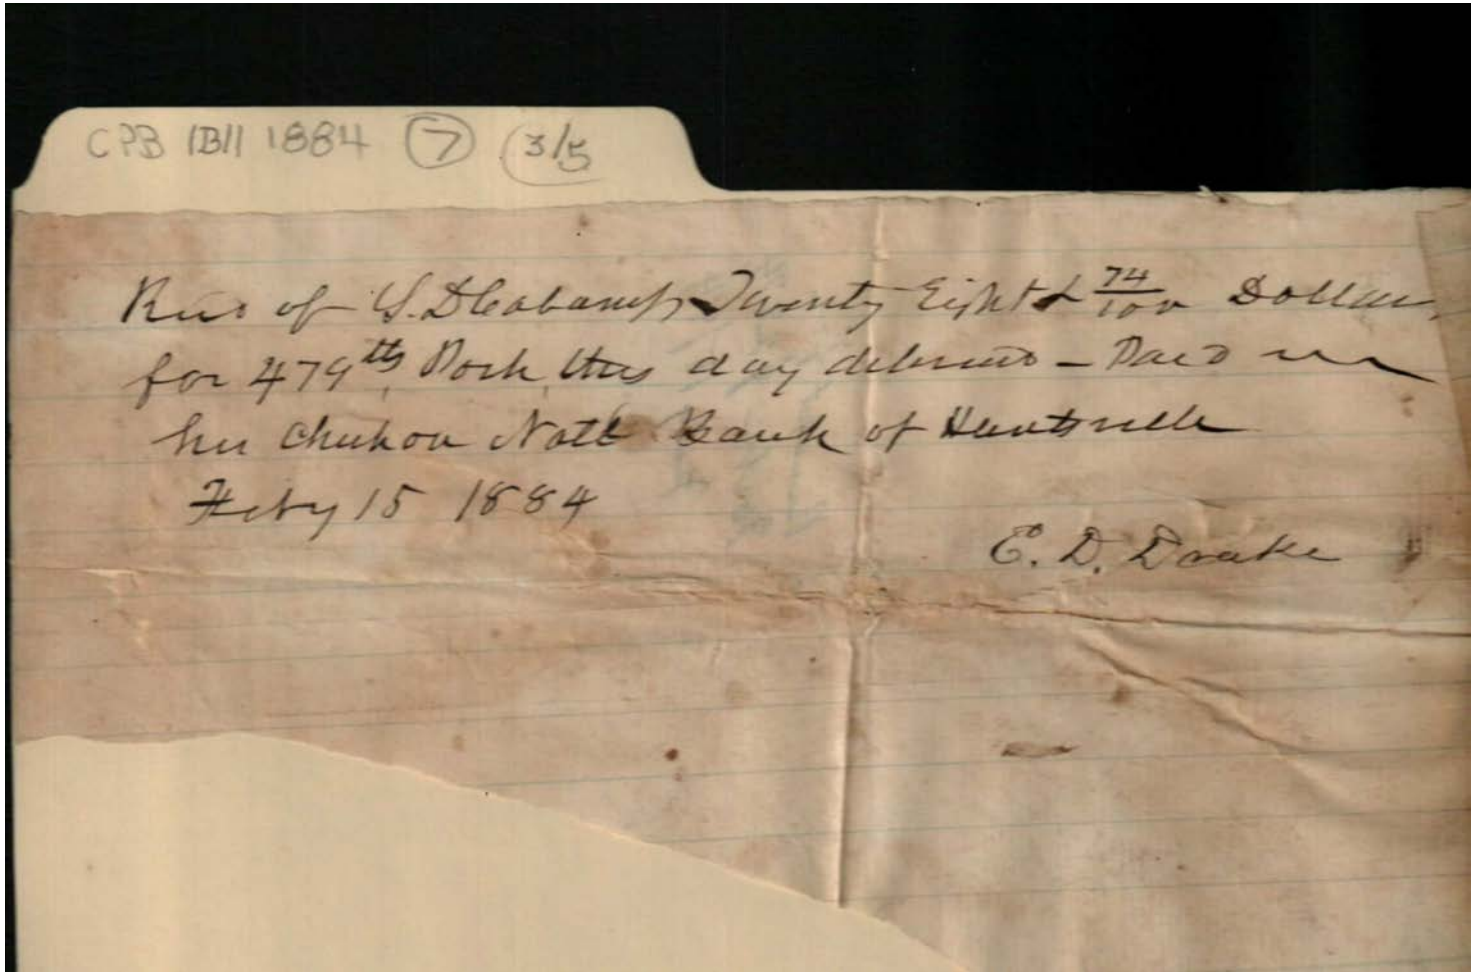 CPB 1B11 1884 7 3/5
Recd of S. D Cabaniss Twenty Eight & 74/100 Dollars
for 479 lbs Pork this day delivered - Paid in
his check on Natl Bank of Huntsville
Feby 15 1884
E. D. Drake